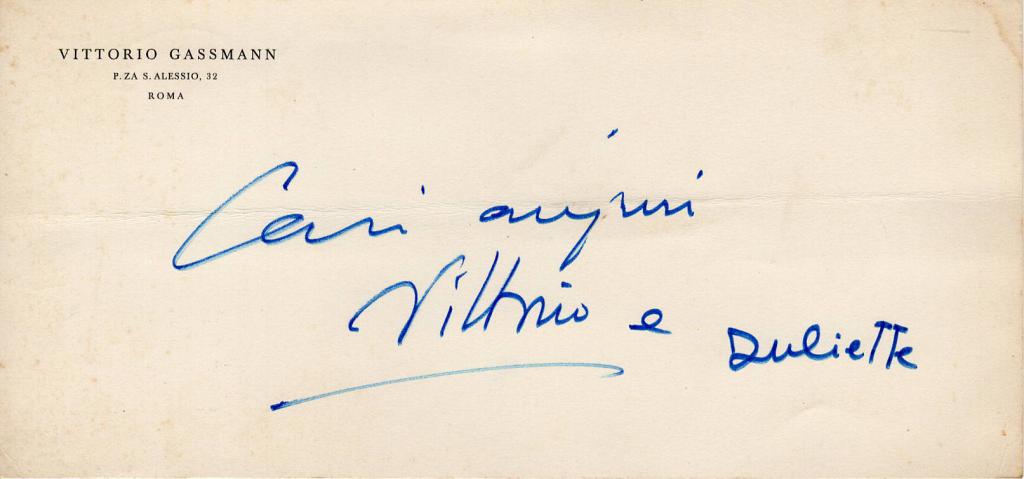 VITTORIO GASSMANN
P.ZA S. ALESSIO, 32
ROMA
Cari auguri
Vittorio e Juliette